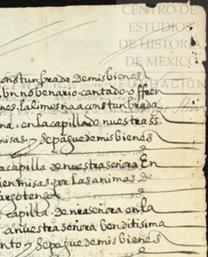 CENTRO DE
ESTUDIOS
DE HISTORIA
DE MÉXICO
FUNDACIÓN
acostunbrada de mis bienes
Un nobenario cantado offren
nes. la limosna acostunbrada
na. en la capilla de nuestra s.
misas. y se pague de mis bienes
la capilla de nuestra señora En
cien misas por las animas de
capilla de nra señora en la
a nuestra señora benditisima
nto y se pague de mis bienes